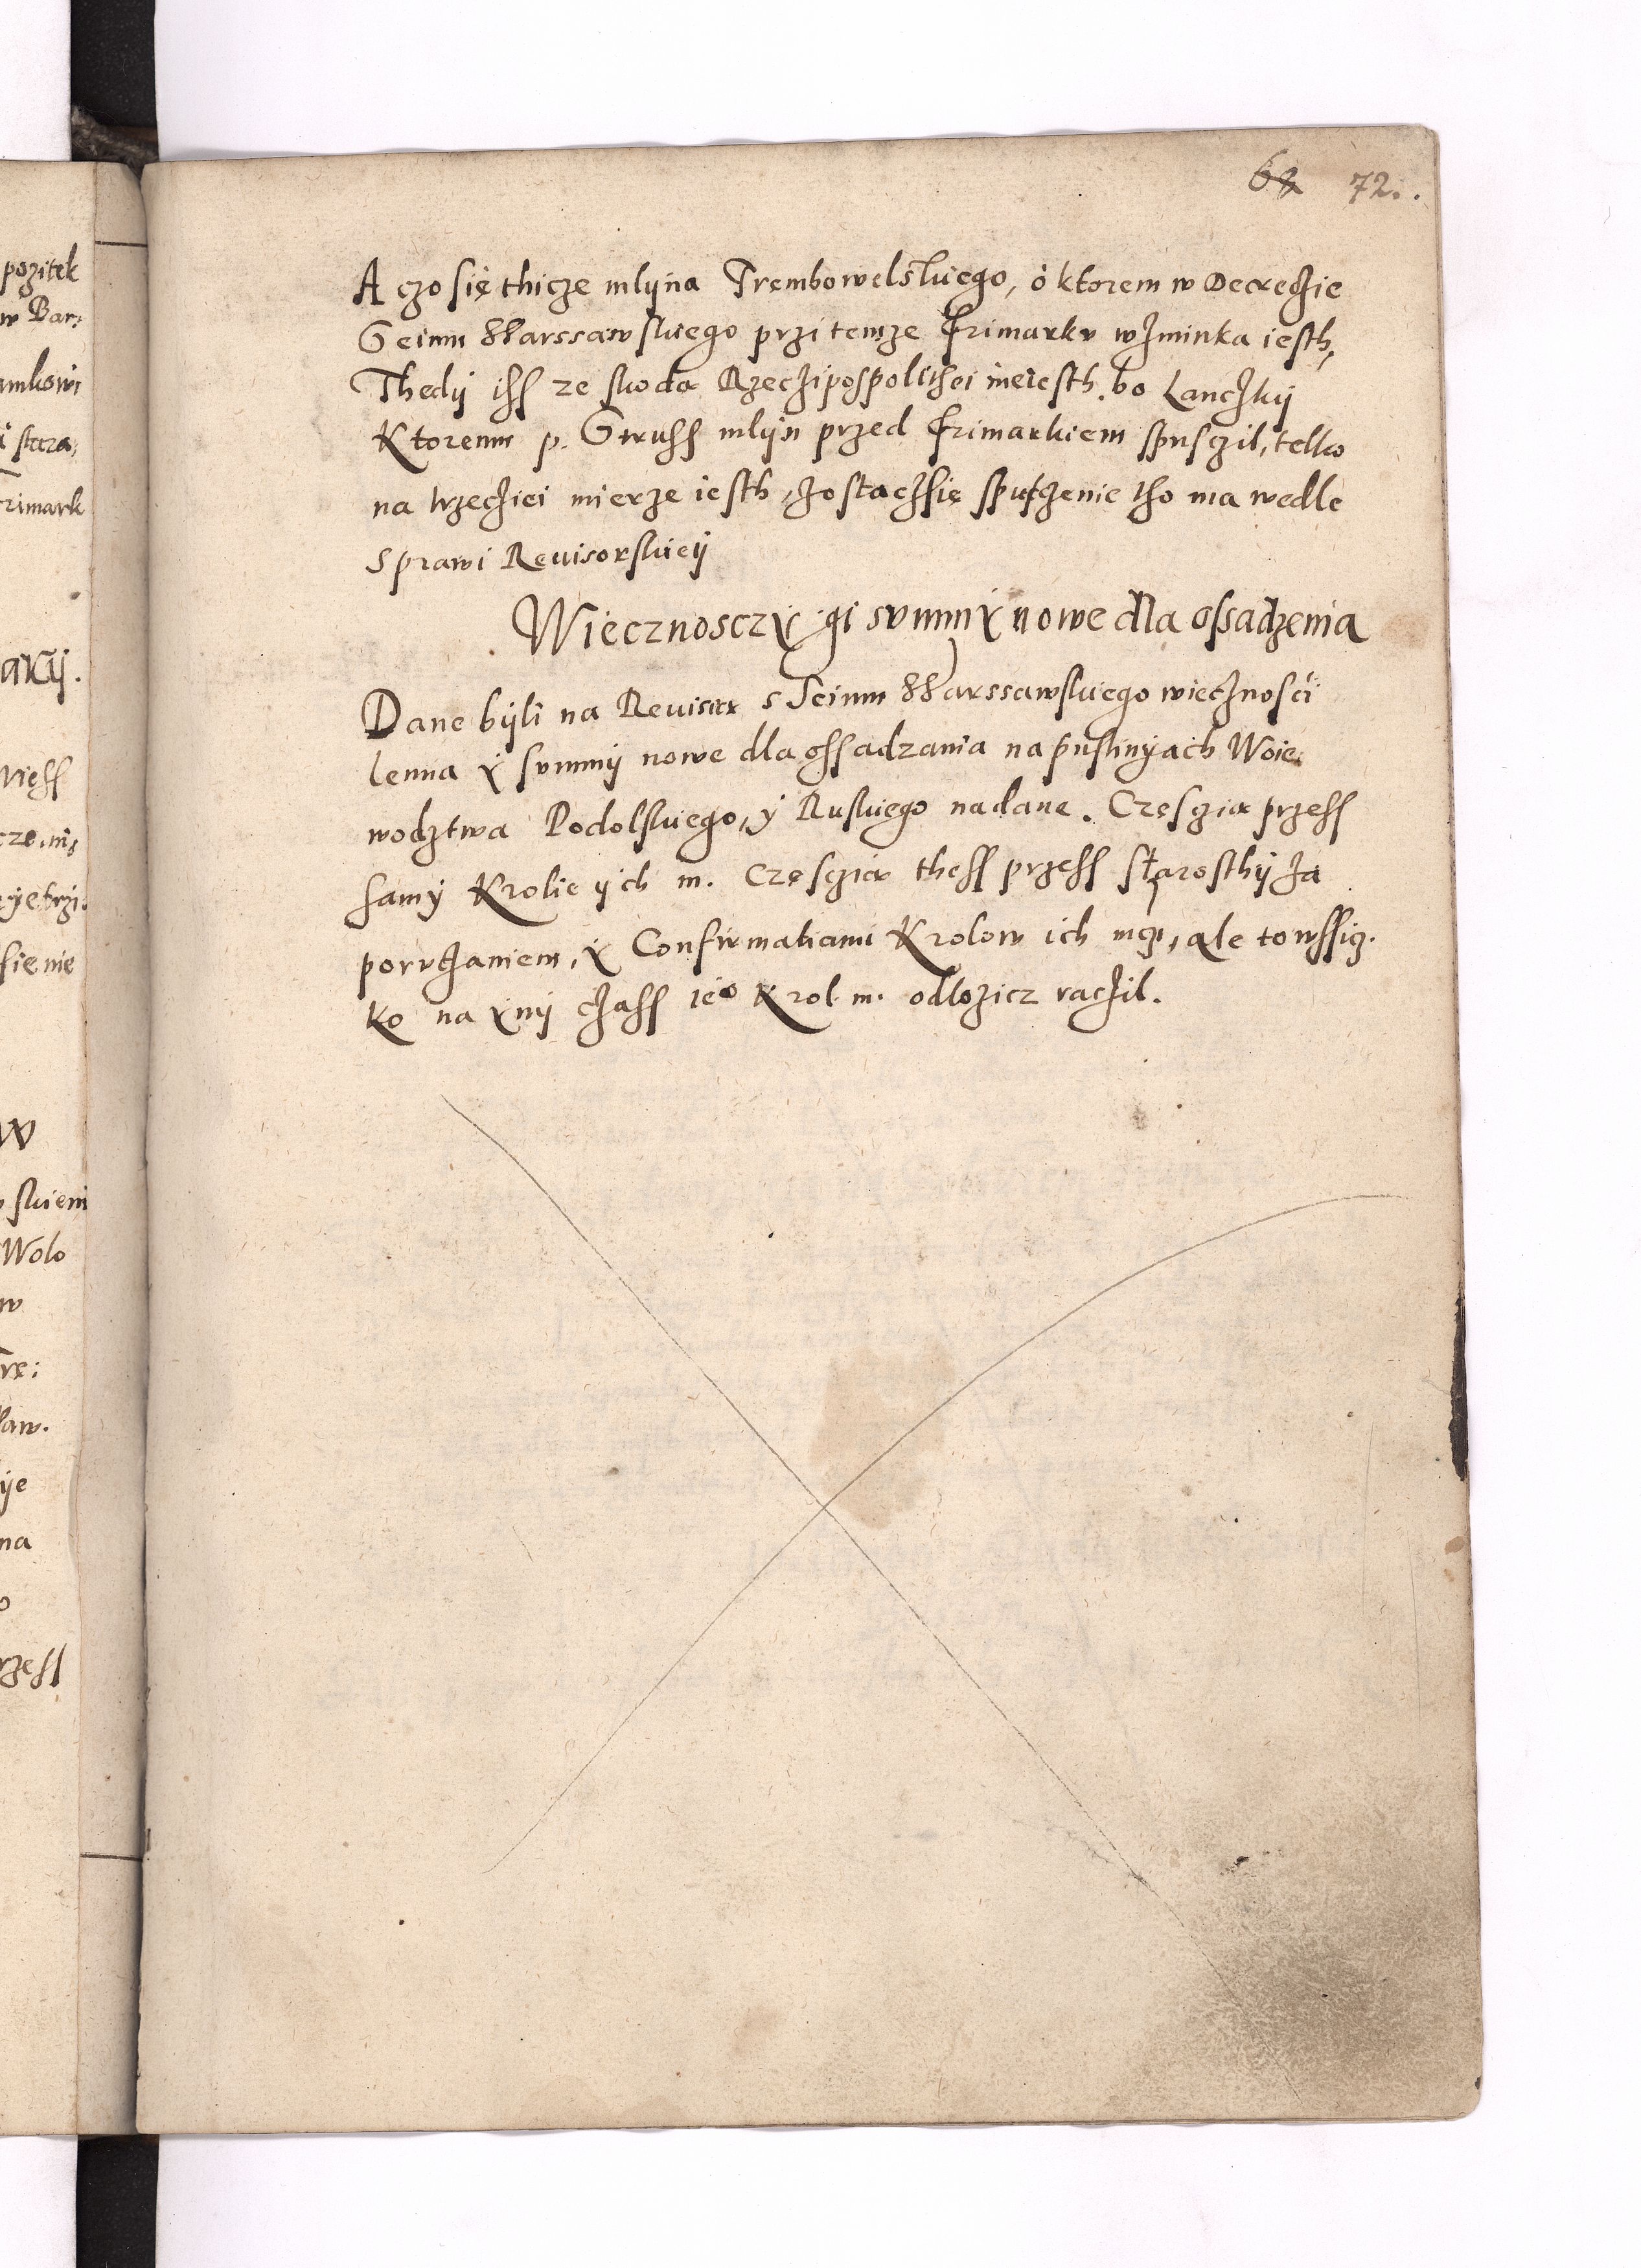 62 72.
A czo się thicze mlyna Trembowelskiego, o ktorem w Decrecie
Seimu Warssawskiego przi temze frimarku wzminka iesth,
Thedy iss ze skoda Rzeczipospolithei nieiesth. bo Lanczky
Ktoremu p. Struss mlyn przed frimarkiem spusczil, telko
na trzeciei mierze iesth, zostaczsię spusczenie tho ma wedle
sprawi Revisorskiey
Wiecznosczy y summy nowe dla ossadzenia
Dane byli na Revisią s Seimu Warssawskiego wiecznosci
lenna y summy nowe dla ossadzania na pustinyach Woie
wodztwa Podolskiego, y Ruskiego nadane. Częsczią przess
samy Krolie ych m. Częsczią thess przess starosthy za
poruczaniem, y Confirmatiami Krolow ich mczi, ale to wssiz.
ko na yny czass ieo Krol. m. odlozicz raczil.
pozitek
w Bar:
amkowi
rimark
ariy.
W
skiem
Wolo
w
law.
na
rzess